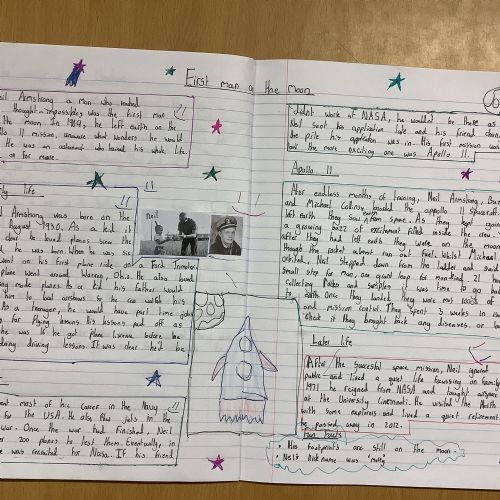 First man on the moon
Neil Armstrong a man who
thought impossible was the first man
the moon. In 1969, he left earth on the
Apollo 11 mission, unaware what wonders he would
He was an astronaut who loved his whole life.
on for more.
Early life
Armstrong was born on the
August 1930. As a kid it
clear he loved planes since the
he was in. when he was six
went on his first plane ride on a Ford Trimotor
plane went around Warren, Ohio. He also loved
making model planes. As a kid his father would
him to air shows so he can watch his
As a teenager, he would have part time jobs
for flying lessons. His lessons paid off as
he was 16 he got plane license before he
during driving lessons. It was clear he'd be
neil
spent most of his career in the Navy
for the USA. He also flew jets in the
war. Once the war had finished Neil
over 200 planes to test them. Eventually, in
he was recruited for Nasa. If his friend
didnt work at NASA, he wouldn't be there as
Neil sent his application late and his friend
the pile his application was in. His first mission was
but the more exciting one was Apollo 11.
Apollo 11
After endless months of training, Neil Armstrong, Buzz
and Michael Collins boarded the appollo 11 spacecraft
left earth they saw earth from space. As they
a growing buzz of excitement filled inside the
after they had left earth they were on the moon
though the rocket almost run out fuel. Whilst Michael
orbited, Neil stepped down from the ladder and said
small step for man, one giant leap for mankind. 21
collecting rocks and samples it was time to go back
to earth. Once they landed, they were met
and mission control. They spent 3 weeks in
check if they brought back any diseases or
Later life
After the successful space mission, Neil
public and lived a quiet life focussing on family
1971 he resigned from NASA and taught
at the University Cincinnati. He visited the North
with some explorers and lived a quiet retirement
he passed away in 2012.
Fun Facts
• His footprints are still on the moon
• Neil's nick name was